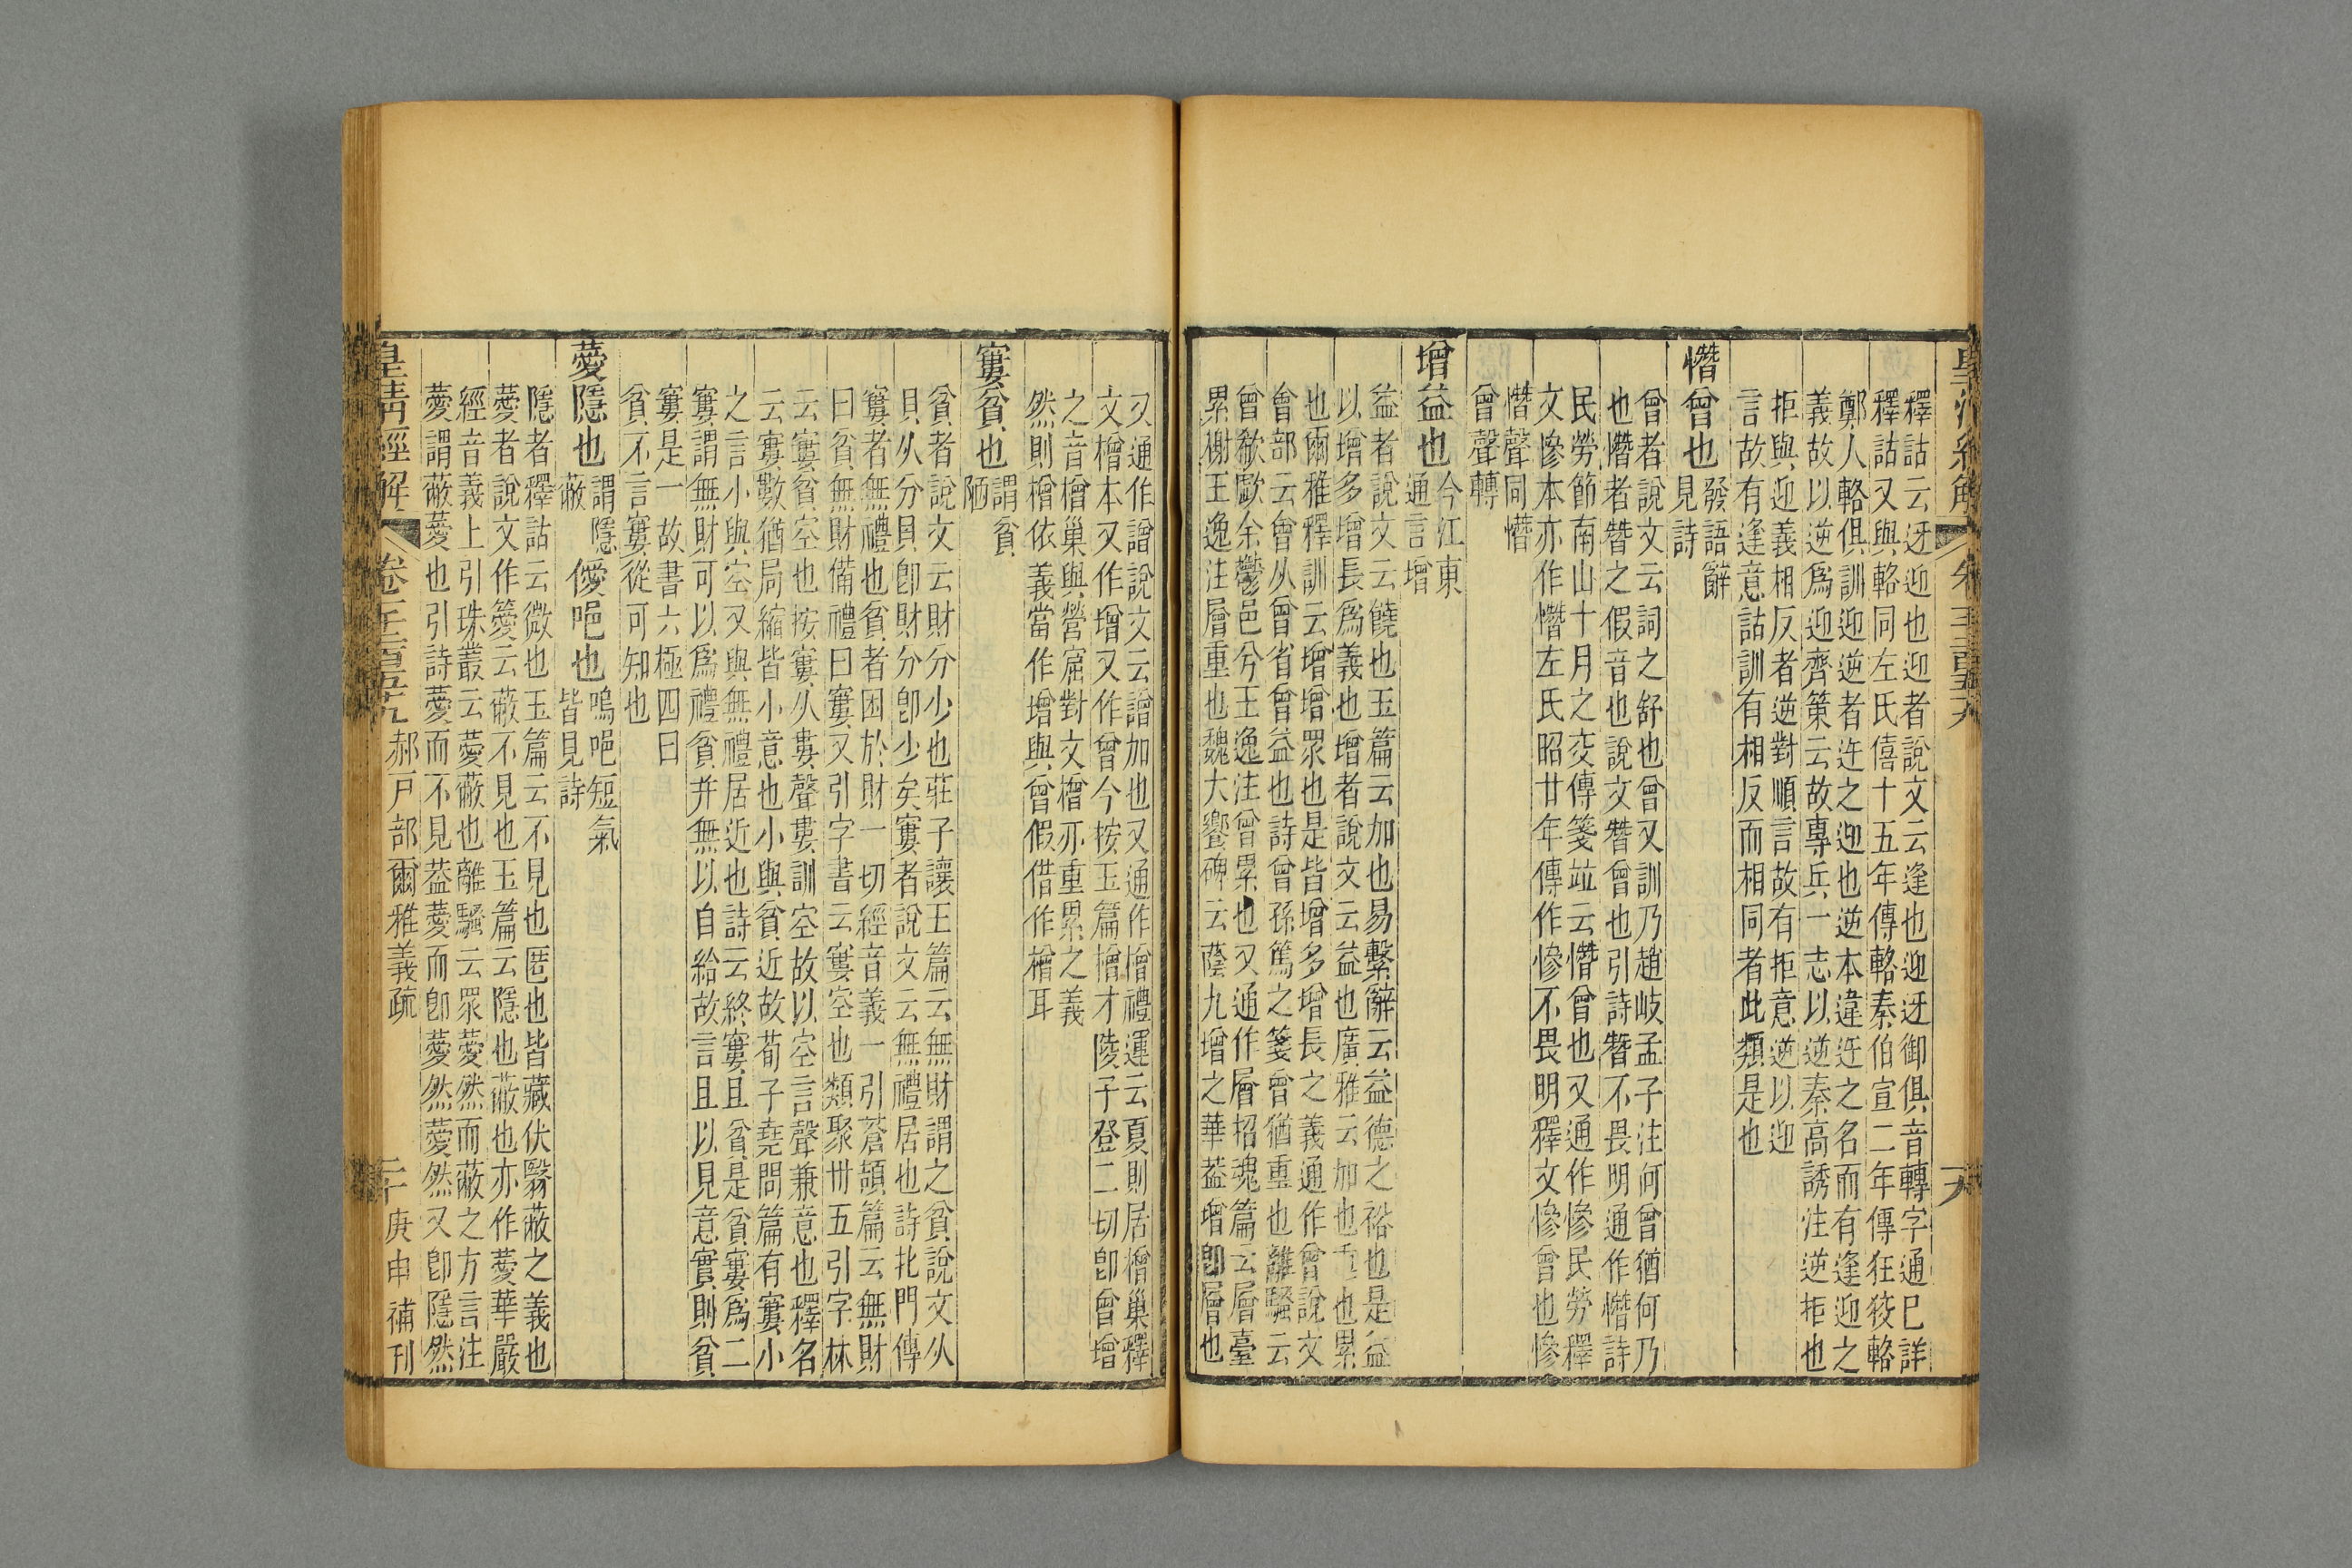 釋詁云迓迎也迎者說文云逢也迎迓御俱音轉字通已詳
釋詁又與輅同左氏僖十五年傳輅秦伯宣二年傳狂狡輅
鄭人輅俱訓迎迎逆者迕之迎也逆本違迕之名而有逢迎之
義故以逆爲迎齊策云故專兵一志以逆秦高誘注逆拒也
拒與迎義相反者逆對順言故有拒意逆以迎
言故有逢意詁訓有相反而相同者此類是也
憯曾也
發語辭
見詩
曾者說文云詞之舒也曾又訓乃趙岐孟子注何曾猶何乃
也憯者朁之假音也說文朁曾也引詩朁不畏明通作憯詩
民勞節南山十月之交傳箋竝云憯曾也又通作慘民勞釋
文慘本亦作憯左氏昭廿年傳作慘不畏明釋文慘曾也慘
憯聲同憯
曾聲轉
增益也
今江東
通言增
益者說文云饒也玉篇云加也易繫辭云益德之裕也是益
以增多增長爲義也增者說文云益也廣雅云加也重也累
也爾雅釋訓云增增眾也是皆增多增長之義通作曾說文
會部云會从曾省曾益也詩曾孫篤之箋曾猶重也離騷云
曾歔欷余鬱邑兮王逸注曾累也又通作層招魂篇云層臺
累榭王逸注層重也魏大饗碑云蔭九增之華葢增卽層也
又通作譄說文云譄加也又通作增禮運云夏則居橧巢釋
文橧本又作增又作曾今按玉篇橧才陵子登二切卽曾增
之音橧巢與營窟對文橧亦重累之義
然則橧依義當作增與曾假借作橧耳
窶貧也
謂貧
陋
貧者說文云財分少也莊子讓王篇云無財謂之貧說文从
貝从分分貝卽財分卽少矣窶者說文云無禮居也詩北門傳
窶者無禮也貧者困於財一切經音義一引蒼頡篇云無財
曰貧無財備禮曰窶又引字書云窶空也類聚卅五引字林
云窶貧空也按窶从婁聲婁訓空故以空言聲兼意也釋名
云窶數猶局縮皆小意也小與貧近故荀子堯問篇有窶小
之言小與空又與無禮居近也詩云終窶且貧是貧窶爲二
窶謂無財可以爲禮貧并無以自給故言且以見意實則貧
窶是一故書六極四曰
貧不言窶從可知也
薆隱也
謂隱
蔽
僾唈也
嗚唈短氣
皆見詩
隱者釋詁云微也玉篇云不見也匿也皆藏伏翳蔽之義也
薆者說文作薆云蔽不見也玉篇云隱也蔽也亦作薆華嚴
經音義上引珠叢云薆蔽也離騷云眾薆然而蔽之方言注
薆謂蔽薆也引詩薆而不見葢薆而卽薆然薆然又卽隱然
皇清經解
卷一千二百五十九
郝戶部爾雅義疏
二十
庚申補刊